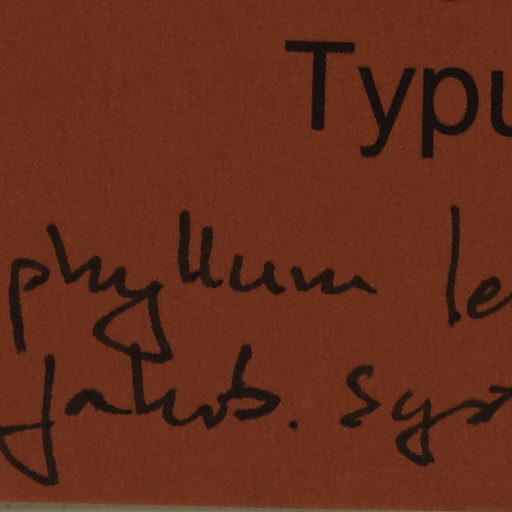 Typu
phyllum le
Jakob. Syst